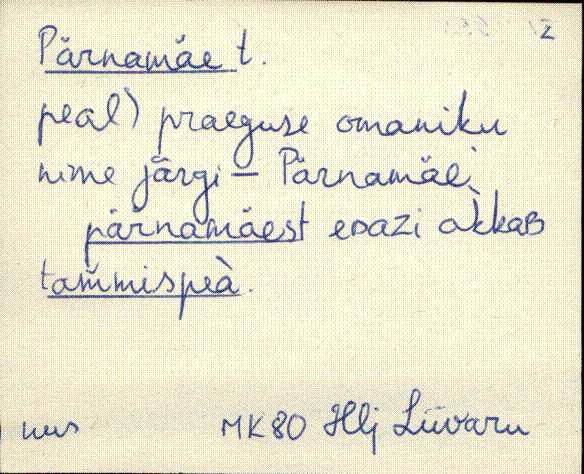 2
Pärnamäe t.
peal) praeguse omaniku
nime järgi – Pärnamäe.
pärnamäest edazi àkkaB
tam̆mispeà.
MK80 Hlj Liivaru